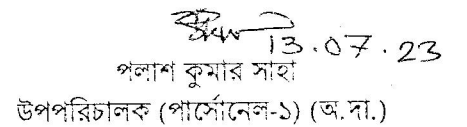 13.07.23
পলাশ কুমার সাহা
উপপরিচালক (পার্সোনেল-১) (অ.দা.)